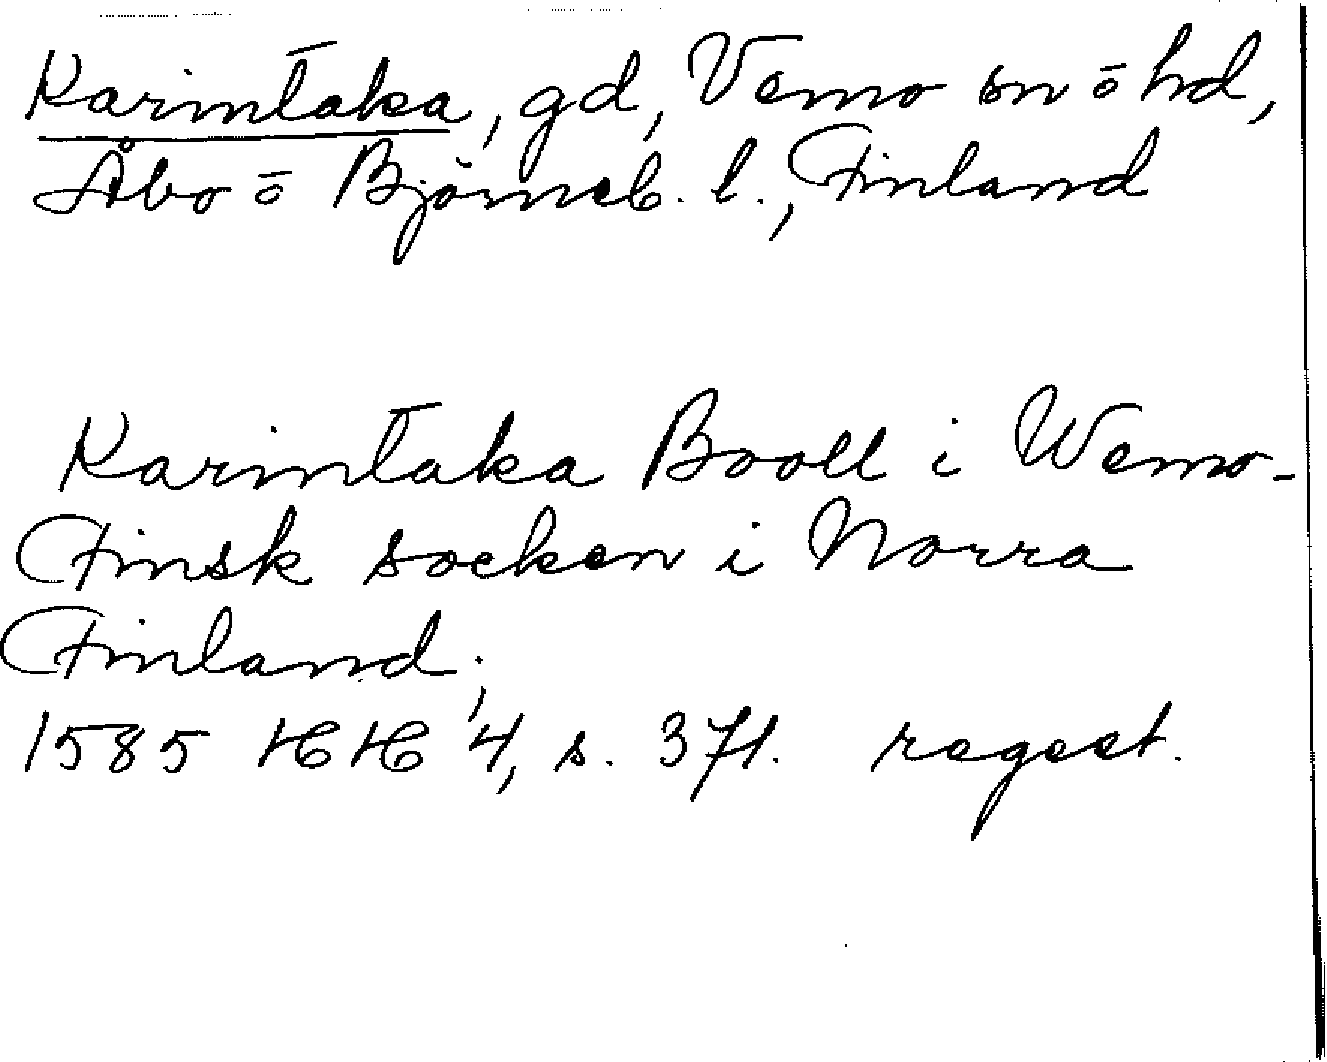 Karintaka, gd, Vemo sn o hd,
Åbo o Björneb. l., Finland
Karintaka Booll i Wemo-
Finsk socken i Norra
Finland;
1585 HH 4, s. 371. regest.